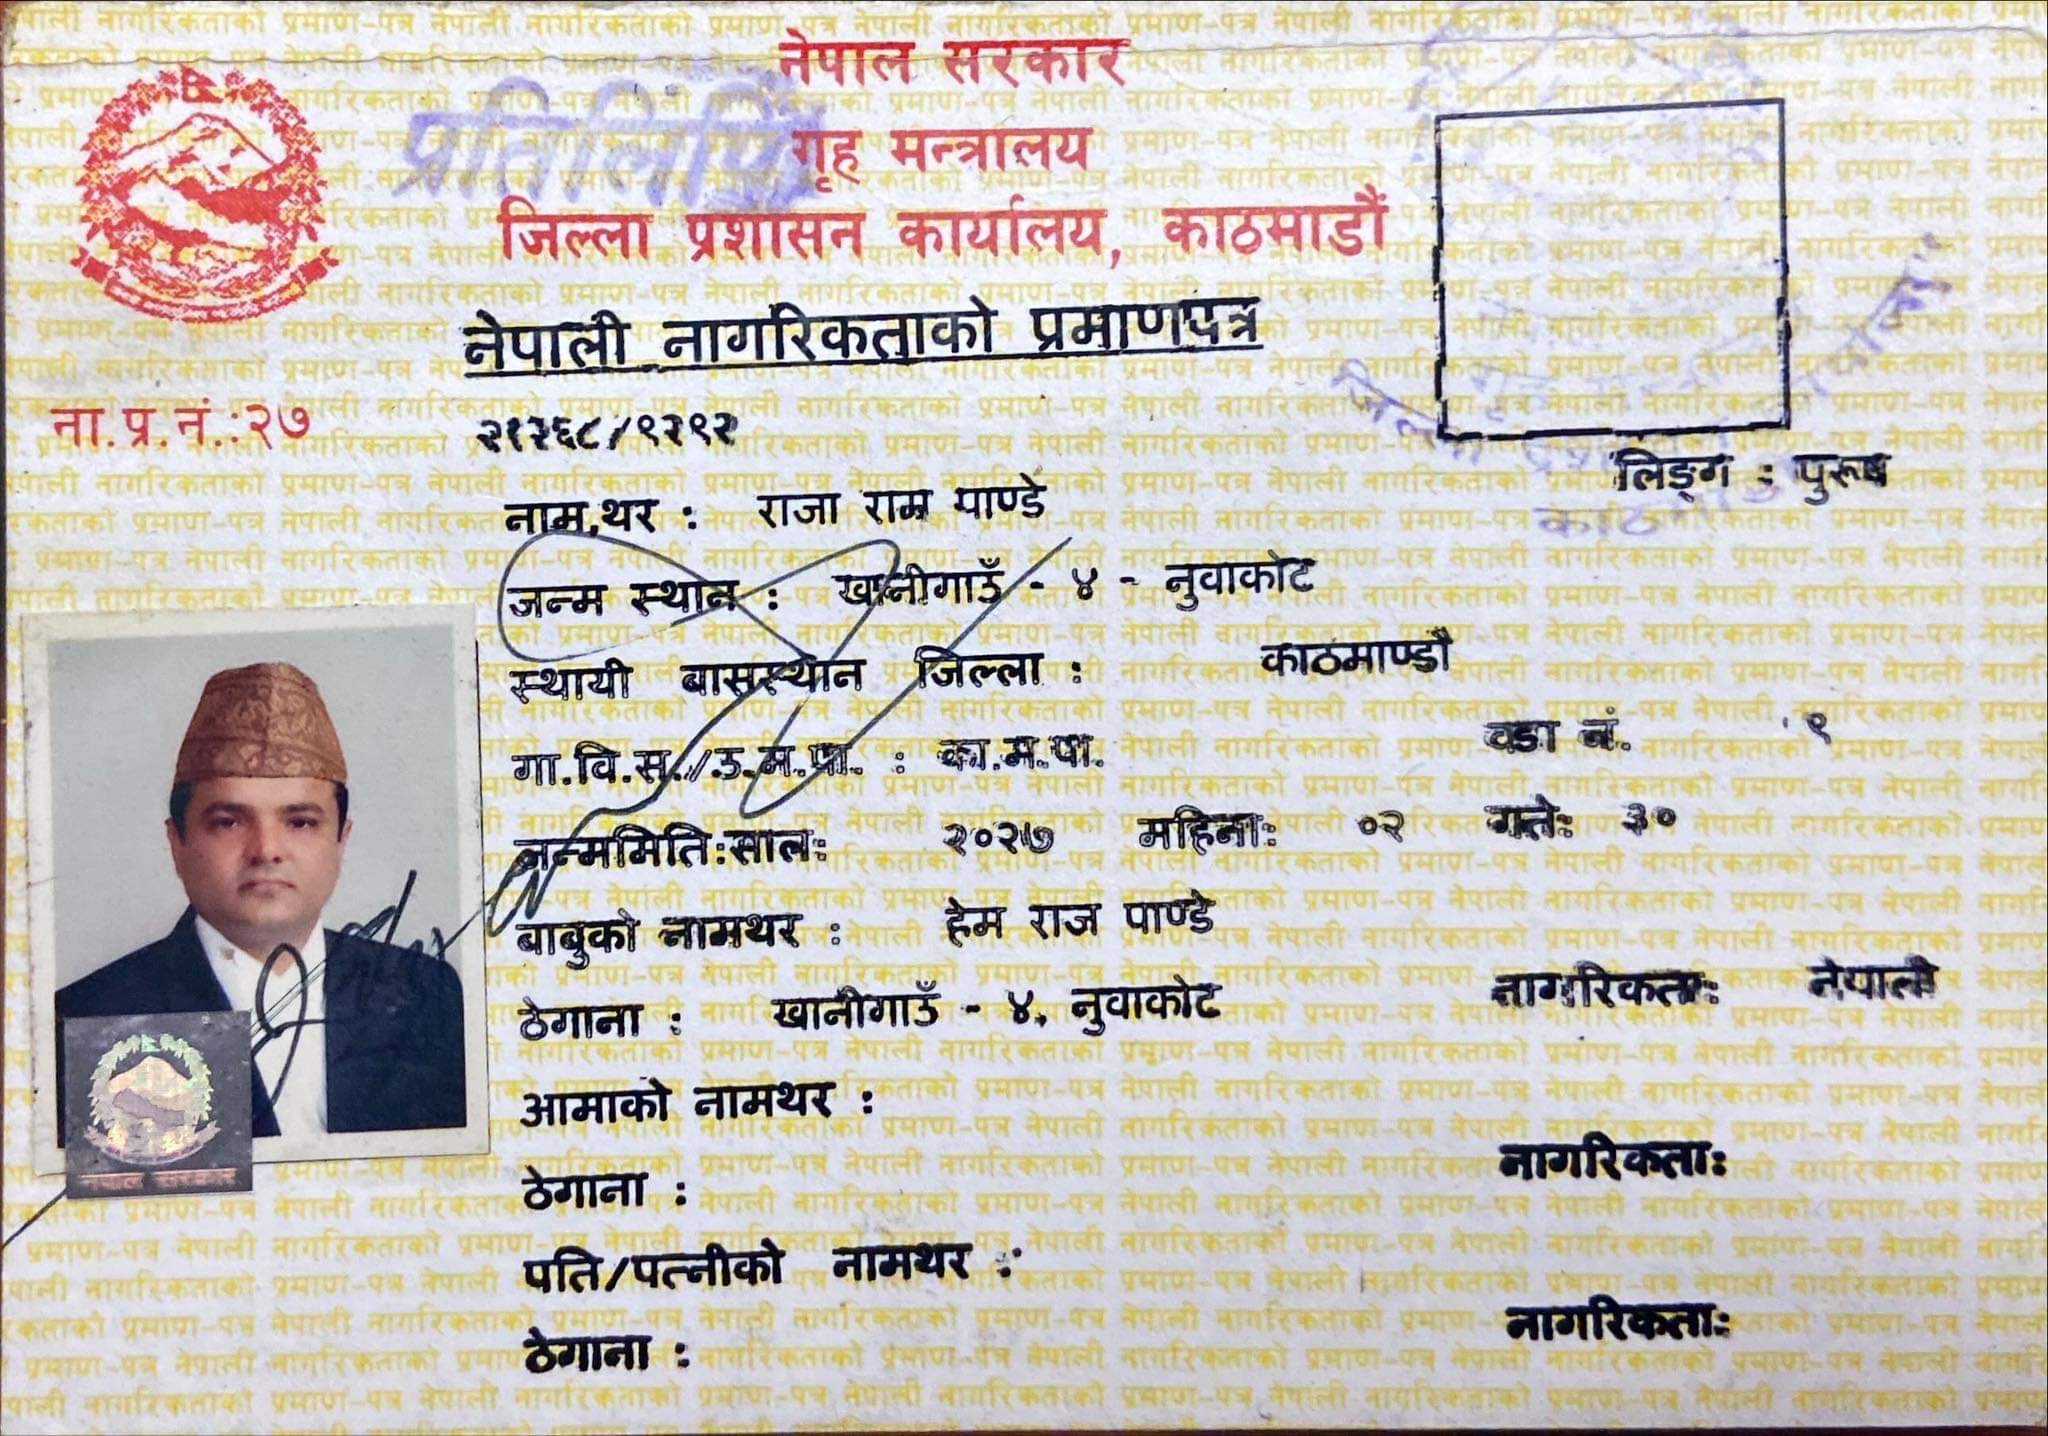 नेपाल सरकार
प्रतिलिपि
गृह मन्त्रालय
जिल्ला प्रशासन कार्यालय, काठमाडौं
नेपाली नागरिकताको प्रमाणपत्र
ना.प्र.नं.:२७ २१२६८/९२९२
लिङ्ग : पुरुष
नाम,थर : राजा राम पाण्डे
जन्म स्थान : खानीगाउँ - ४ - नुवाकोट
स्थायी बासस्थान जिल्ला : काठमाण्डौ
गा.वि.स./उ.म.पा. : का.म.पा. वडा नं. ९
जन्ममिति:साल: २०२७ महिना: ०२ गते: ३०
बाबुको नामथर : हेम राज पाण्डे
ठेगाना : खानीगाउँ - ४, नुवाकोट नागरिकता: नेपाली
आमाको नामथर :
ठेगाना : नागरिकता:
पति/पत्नीको नामथर :
ठेगाना : नागरिकता:
नेपाल सरकार